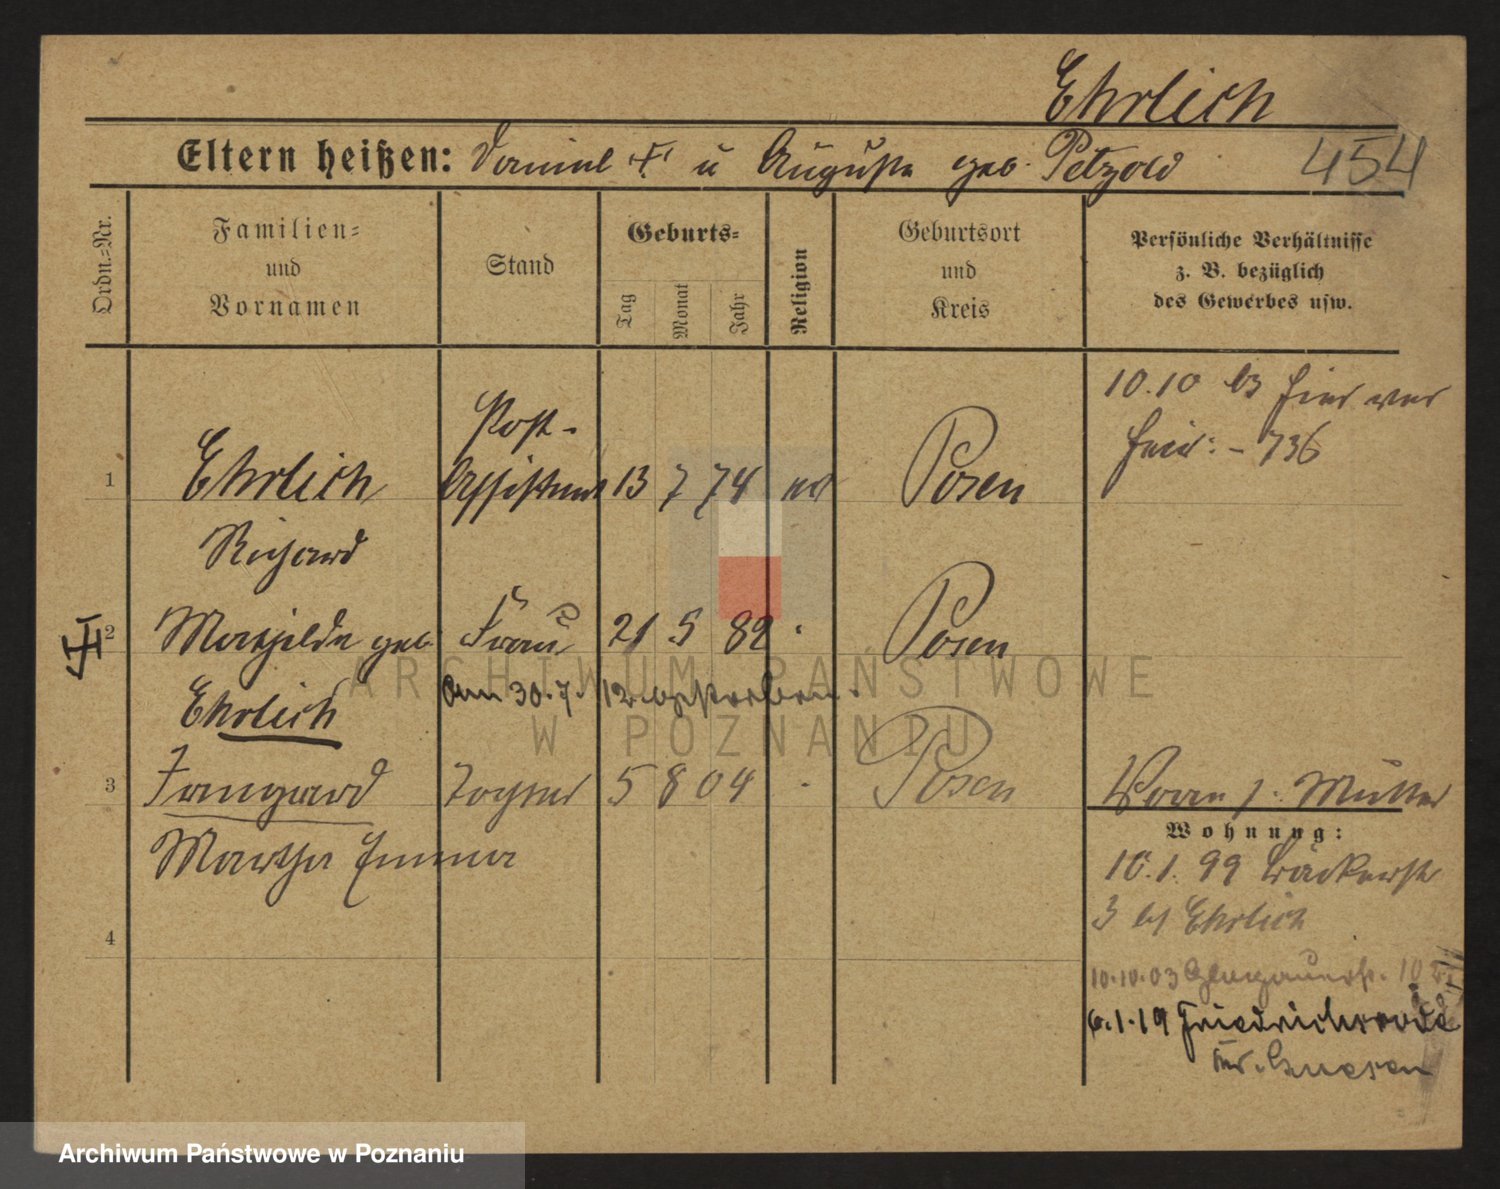 Ehrlich
Eltern heißen: Daniel † u Auguste geb. Petzold 454
Ordn.=Nr.
Familien=
und
Vornamen
Stand
Geburts=
Tag
Monat
Jahr
Religion
Geburtsort
und
Kreis
Persönliche Verhältnisse
z. B. bezüglich
des Gewerbes usw.
10.10 03 hier ver
heir: - 736
Post-
1 Ehrlich Assistent 13 7 74 ev Posen
Richard
2 Mathilde geb. Frau 21 5 82 Posen
am 30.7. 12 verstorben.
Ehrlich
3 Irmgard Tochter 5 8 04 Posen
Martha Emma
4
Mutter
Wohnung:
10.1.99 Bäckerstr
3 bei Ehrlich
10.10.03 Glogauerstr. 102
6.1.19 Friedrichsrode
Kr. Gnesen
ARCHIWUM PAŃSTWOWE
W POZNANIU
Archiwum Państwowe w Poznaniu